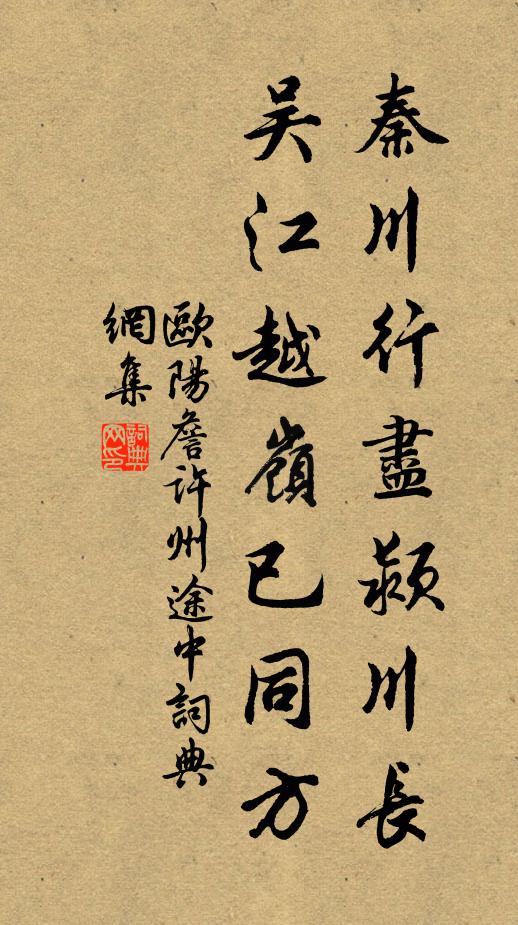 秦川行盡潁川長
吳江越嶺已同方
歐陽詹許州途中詞典
網集
詞典網印